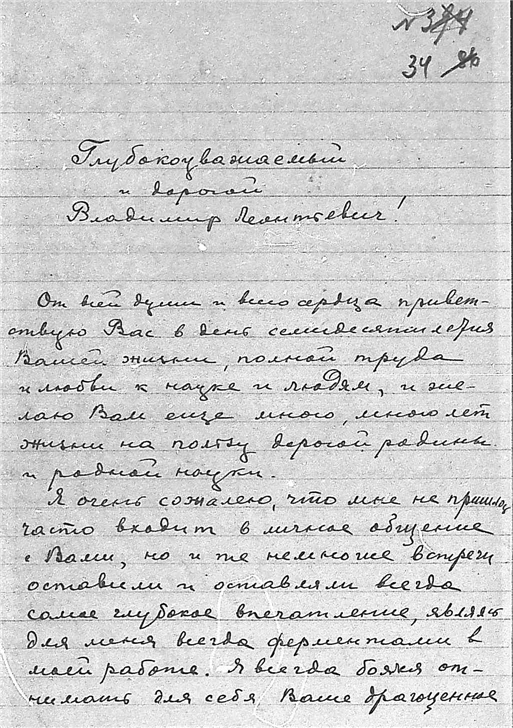 N 344
34 86
Глубокоуважаемый
и дорогой
Владимир Леонтьевич!
От всей души и всего сердца привет-
ствую Вас в день семидесятилетия
Вашей жизни, полной труда
и любви к науке и людям, и же-
лаю Вам еще много, много лет
жизни на пользу дорогой родины
и родной науки.
Я очень сожалею, что мне не пришлось
часто входить в личное общение
с Вами, но и те немногие встречи
оставили и оставляли всегда
самое глубокое впечатление, являясь
для меня всегда ферментами в
моей работе. Я всегда боялся от-
нимать для себя Ваше драгоценное